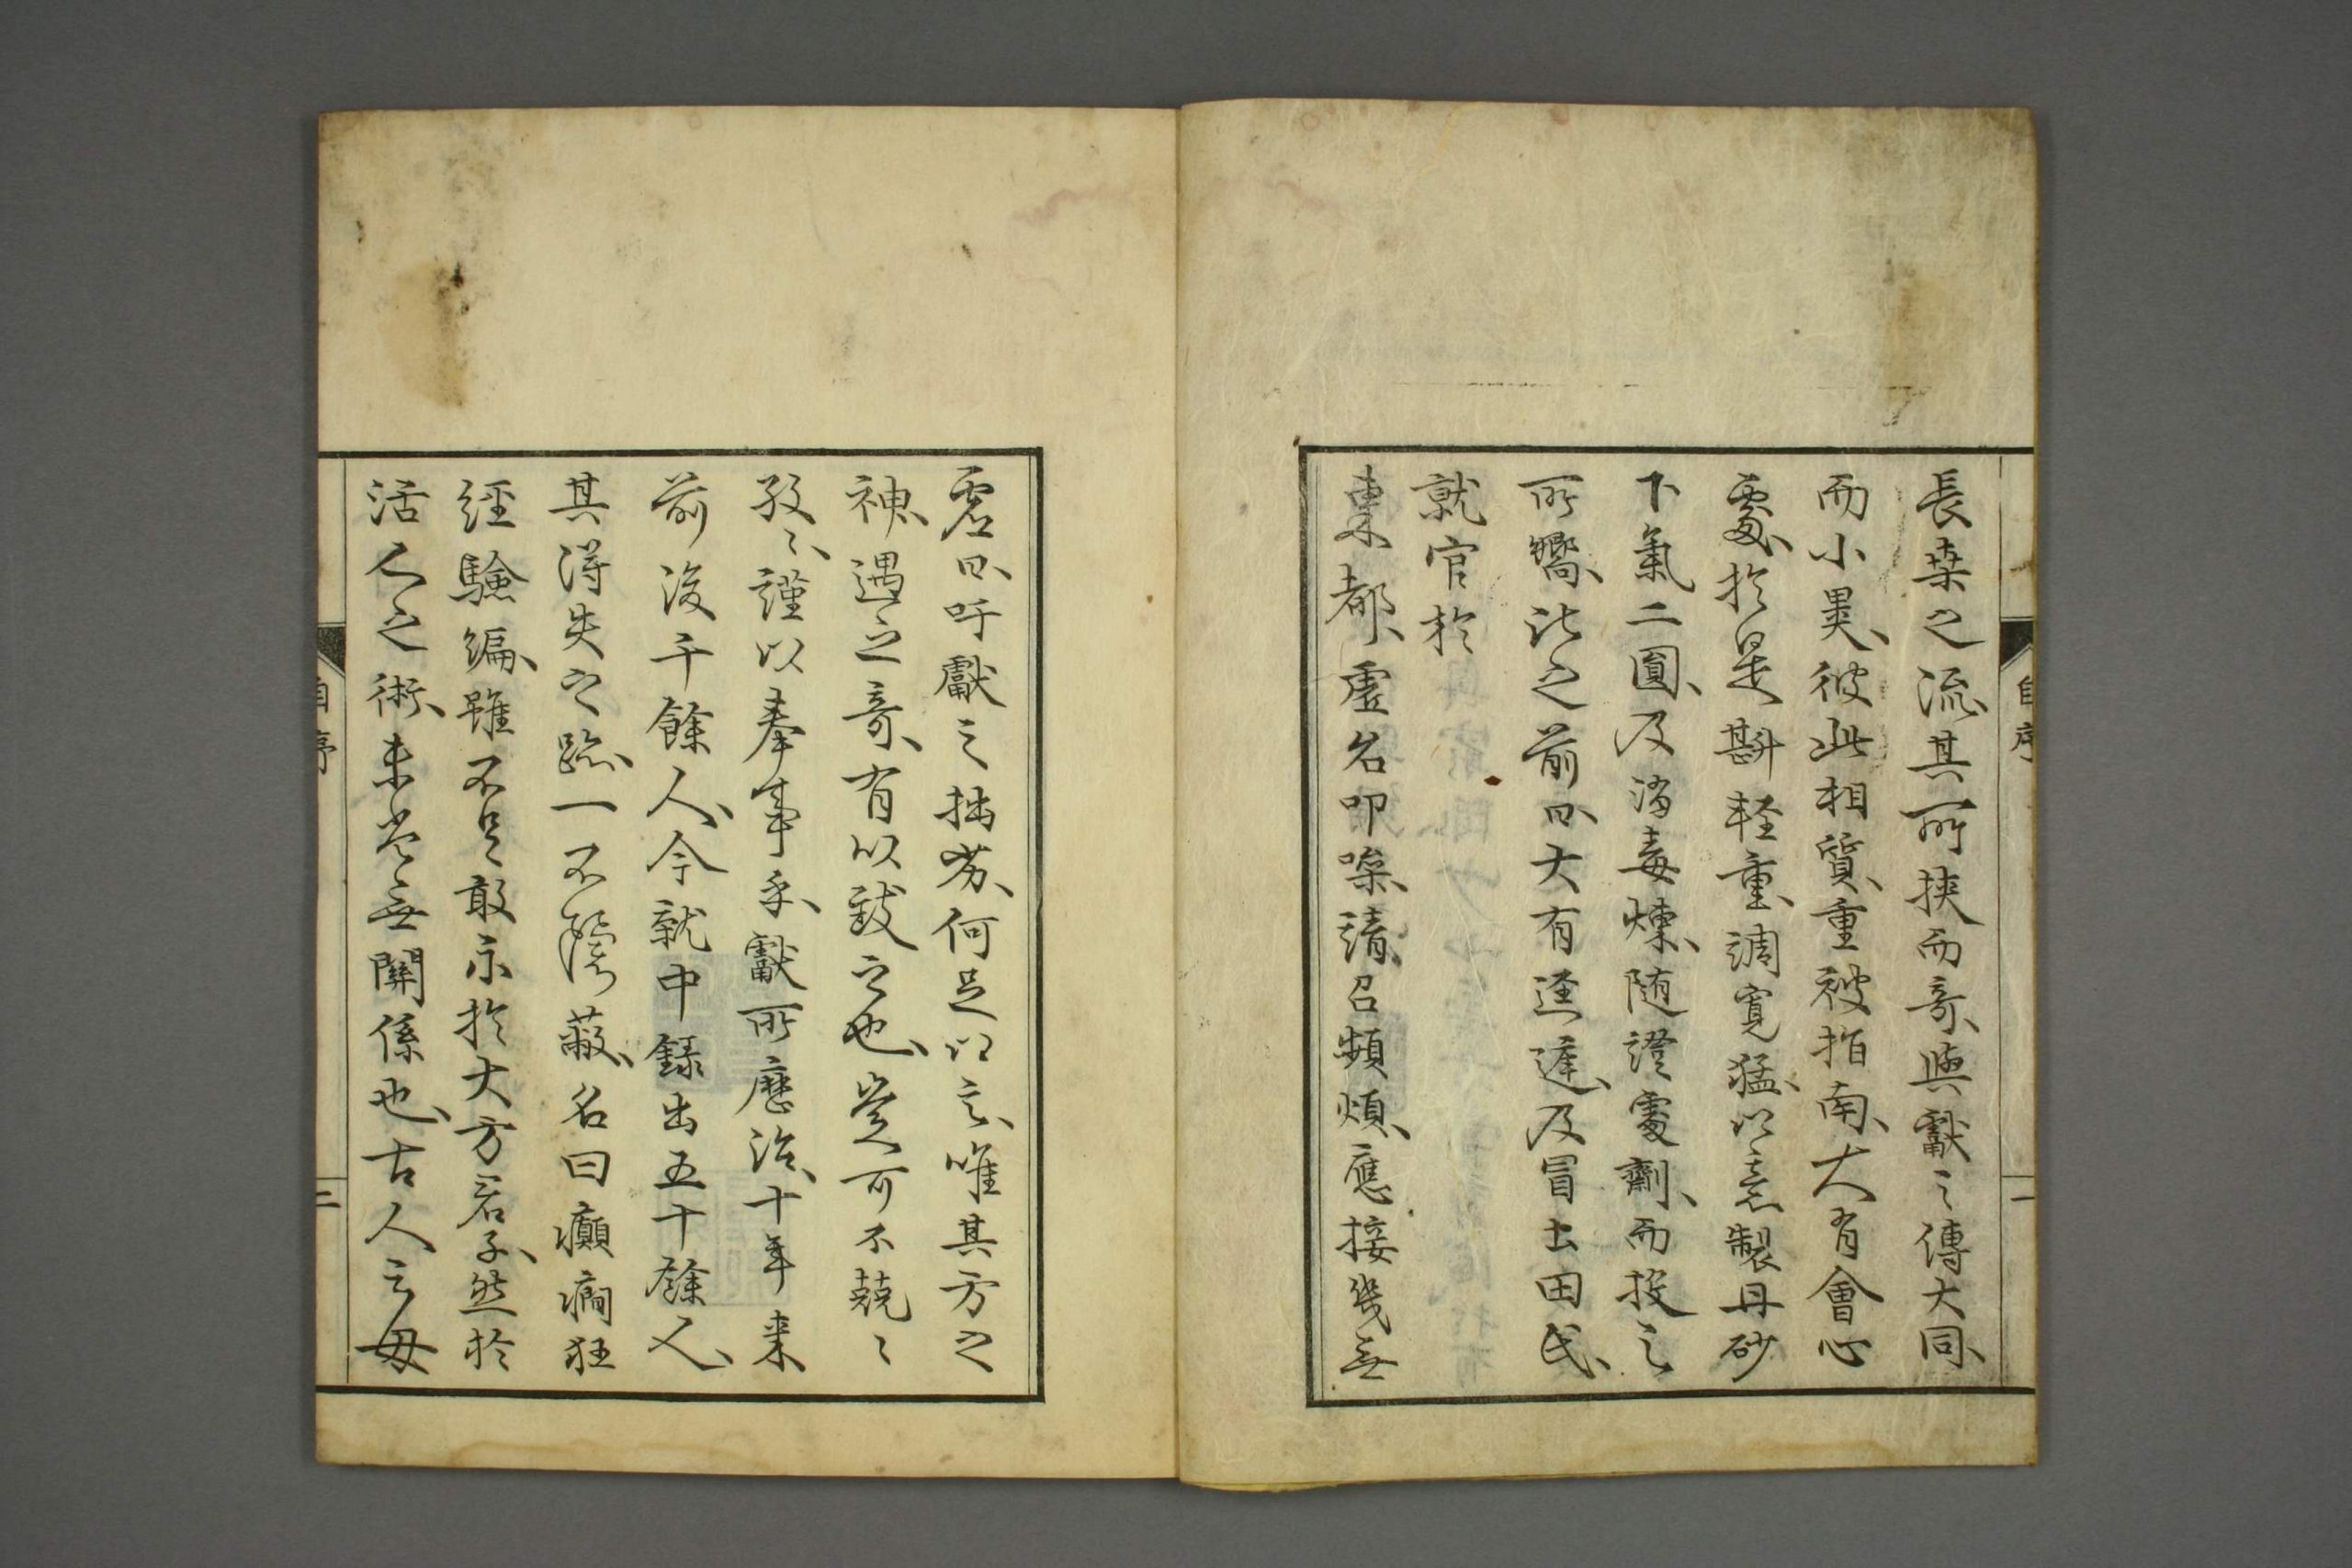 長桒之流、其所挾而奇、與獻之傳大同、
而小異、彼此相質、重被指南、大有會心
處、於是斟輕重、調寬猛、以意製丹砂
下氣二圓、及消毒煉、随證處劑、而投之
所嚮、比之前日、大有逕遳、及冒土田氏、
就官於
東都、虛名叩噪、請召頻煩、應接幾無
虛日、吁獻之拙劣、何足以言、唯其方之
神、遇之奇、有以致之也、豈可不兢〻
孜〻、謹以奉事乎、獻所歷治、十年来
前後千餘人、今就中録出五十餘人、
其得失之跡、一不隱蔽、名曰癲癇狂
經驗編、雖不足敢示於大方君子、然於
活人之術、未必無關係也、古人之毋
自序
二
自序
三